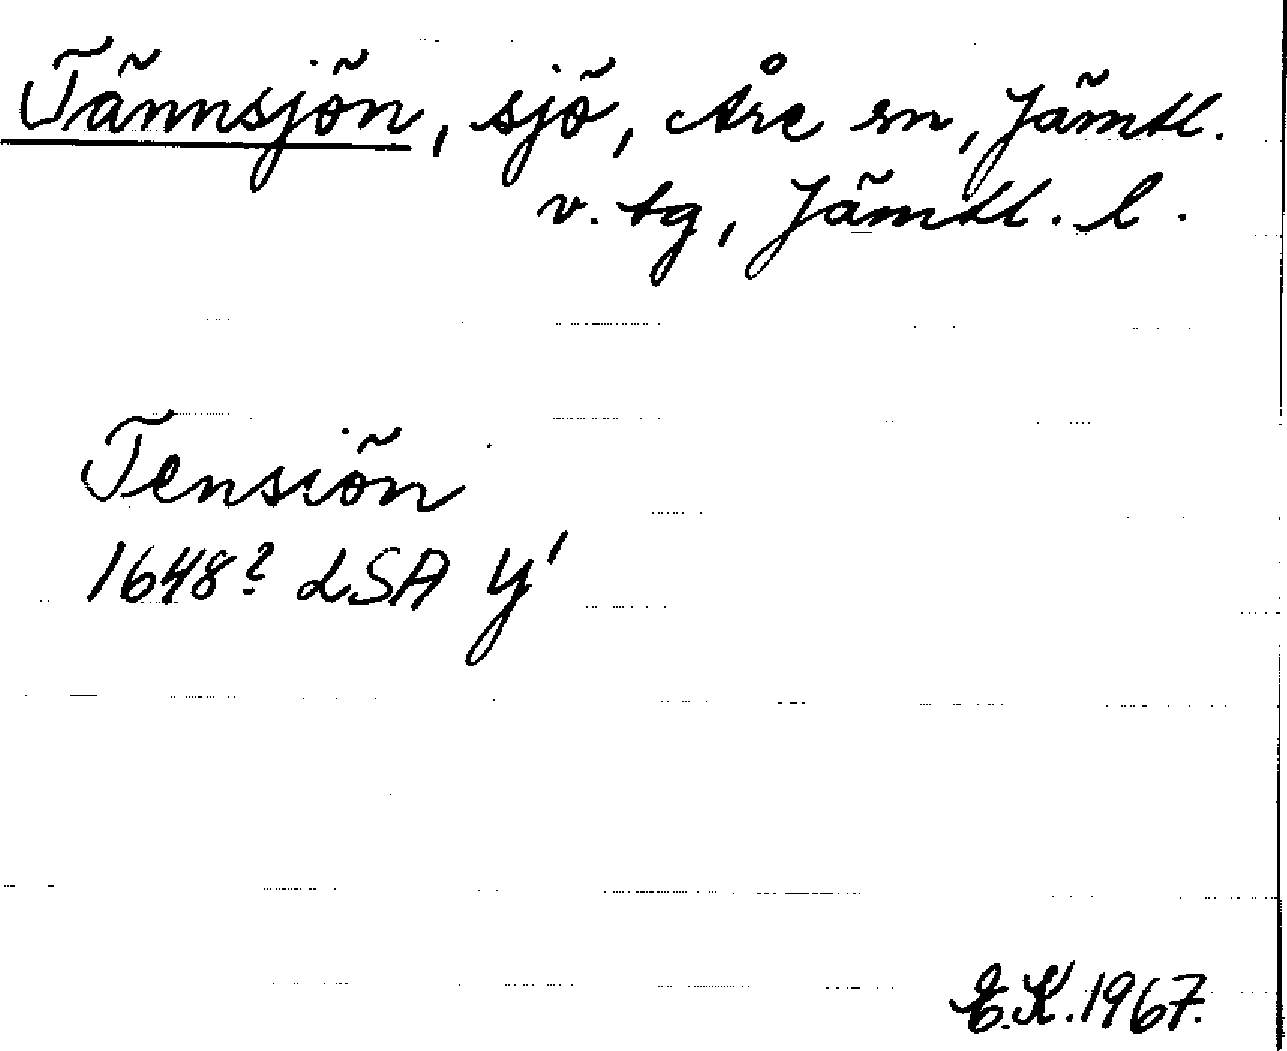 Tännsjön, sjö, Åre sn, Jämtl.
v. tg, Jämtl. l.
Tensiön
1648? LSA Y'
E.K. 1967.